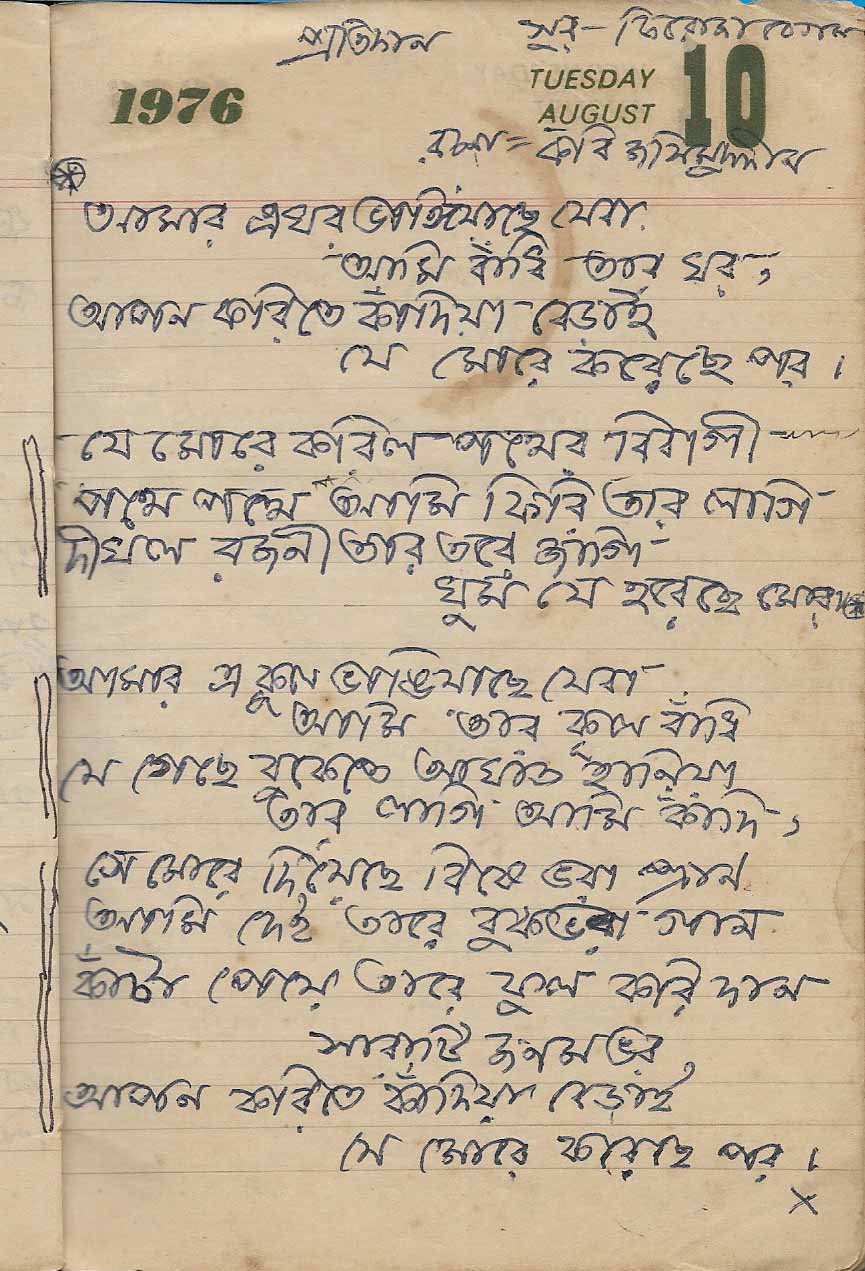 প্রতিদান সুর - ফিরোজা বেগম
1976 TUESDAY AUGUST 10
রচনা = কবি জসিমুদ্দীন
আমার এঘর ভাঙ্গিয়াছে যেবা
আমি বাঁধি তার ঘর,
আপন করিতে কাঁদিয়া বেড়াই
যে মোরে করেছে পর।
যে মোরে করিল পথের বিবাগী
পথে পথে আমি ফিরি তার লাগি
দীঘল রজনী তার তরে জাগি
ঘুম যে হরেছে মোর
আমার এ কূল ভাঙিয়াছে যেবা
আমি তার কূল বাঁধি
যে গেছে বুকেতে আঘাত হানিয়া
তার লাগি আমি কাঁদি,
সে মোরে দিয়েছে বিষে ভরা প্রান
আমি দেই তারে বুকভরা গান
কাঁটা পেয়ে তারে ফুল করি দান
সারাটি জনমভর
আপন করিতে কাঁদিয়া বেড়াই
যে মোরে করেছে পর।
x